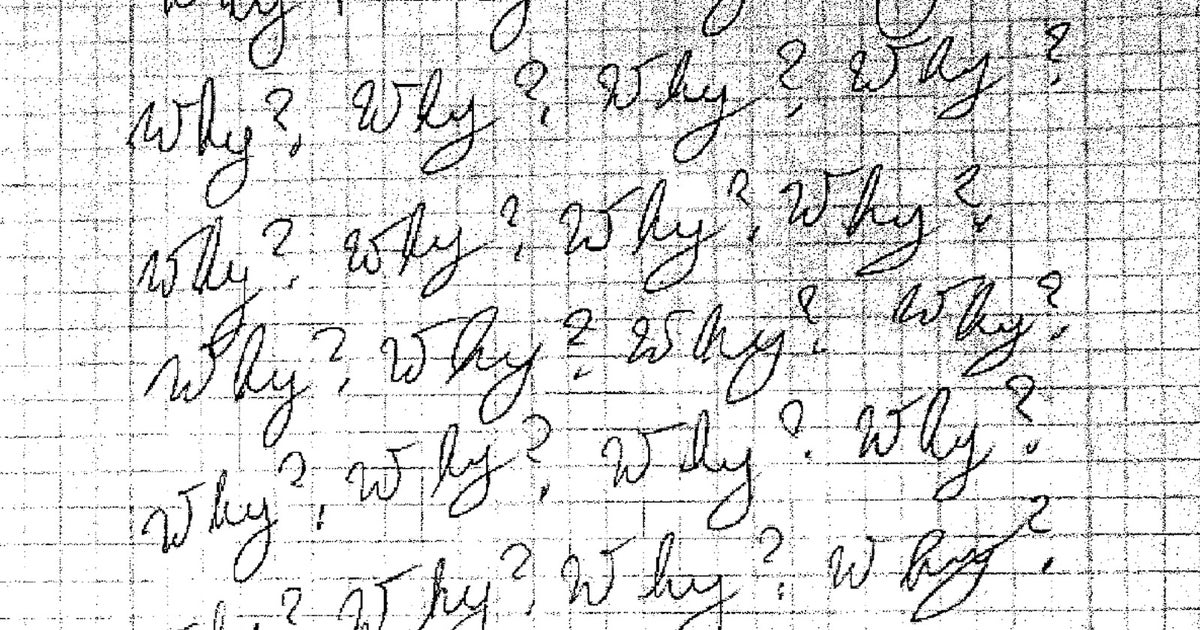 Why? Why? Why? Why?
Why? Why? Why? Why?
Why? Why? Why? Why?
Why? Why? Why? Why?
Why? Why? Why? Why?